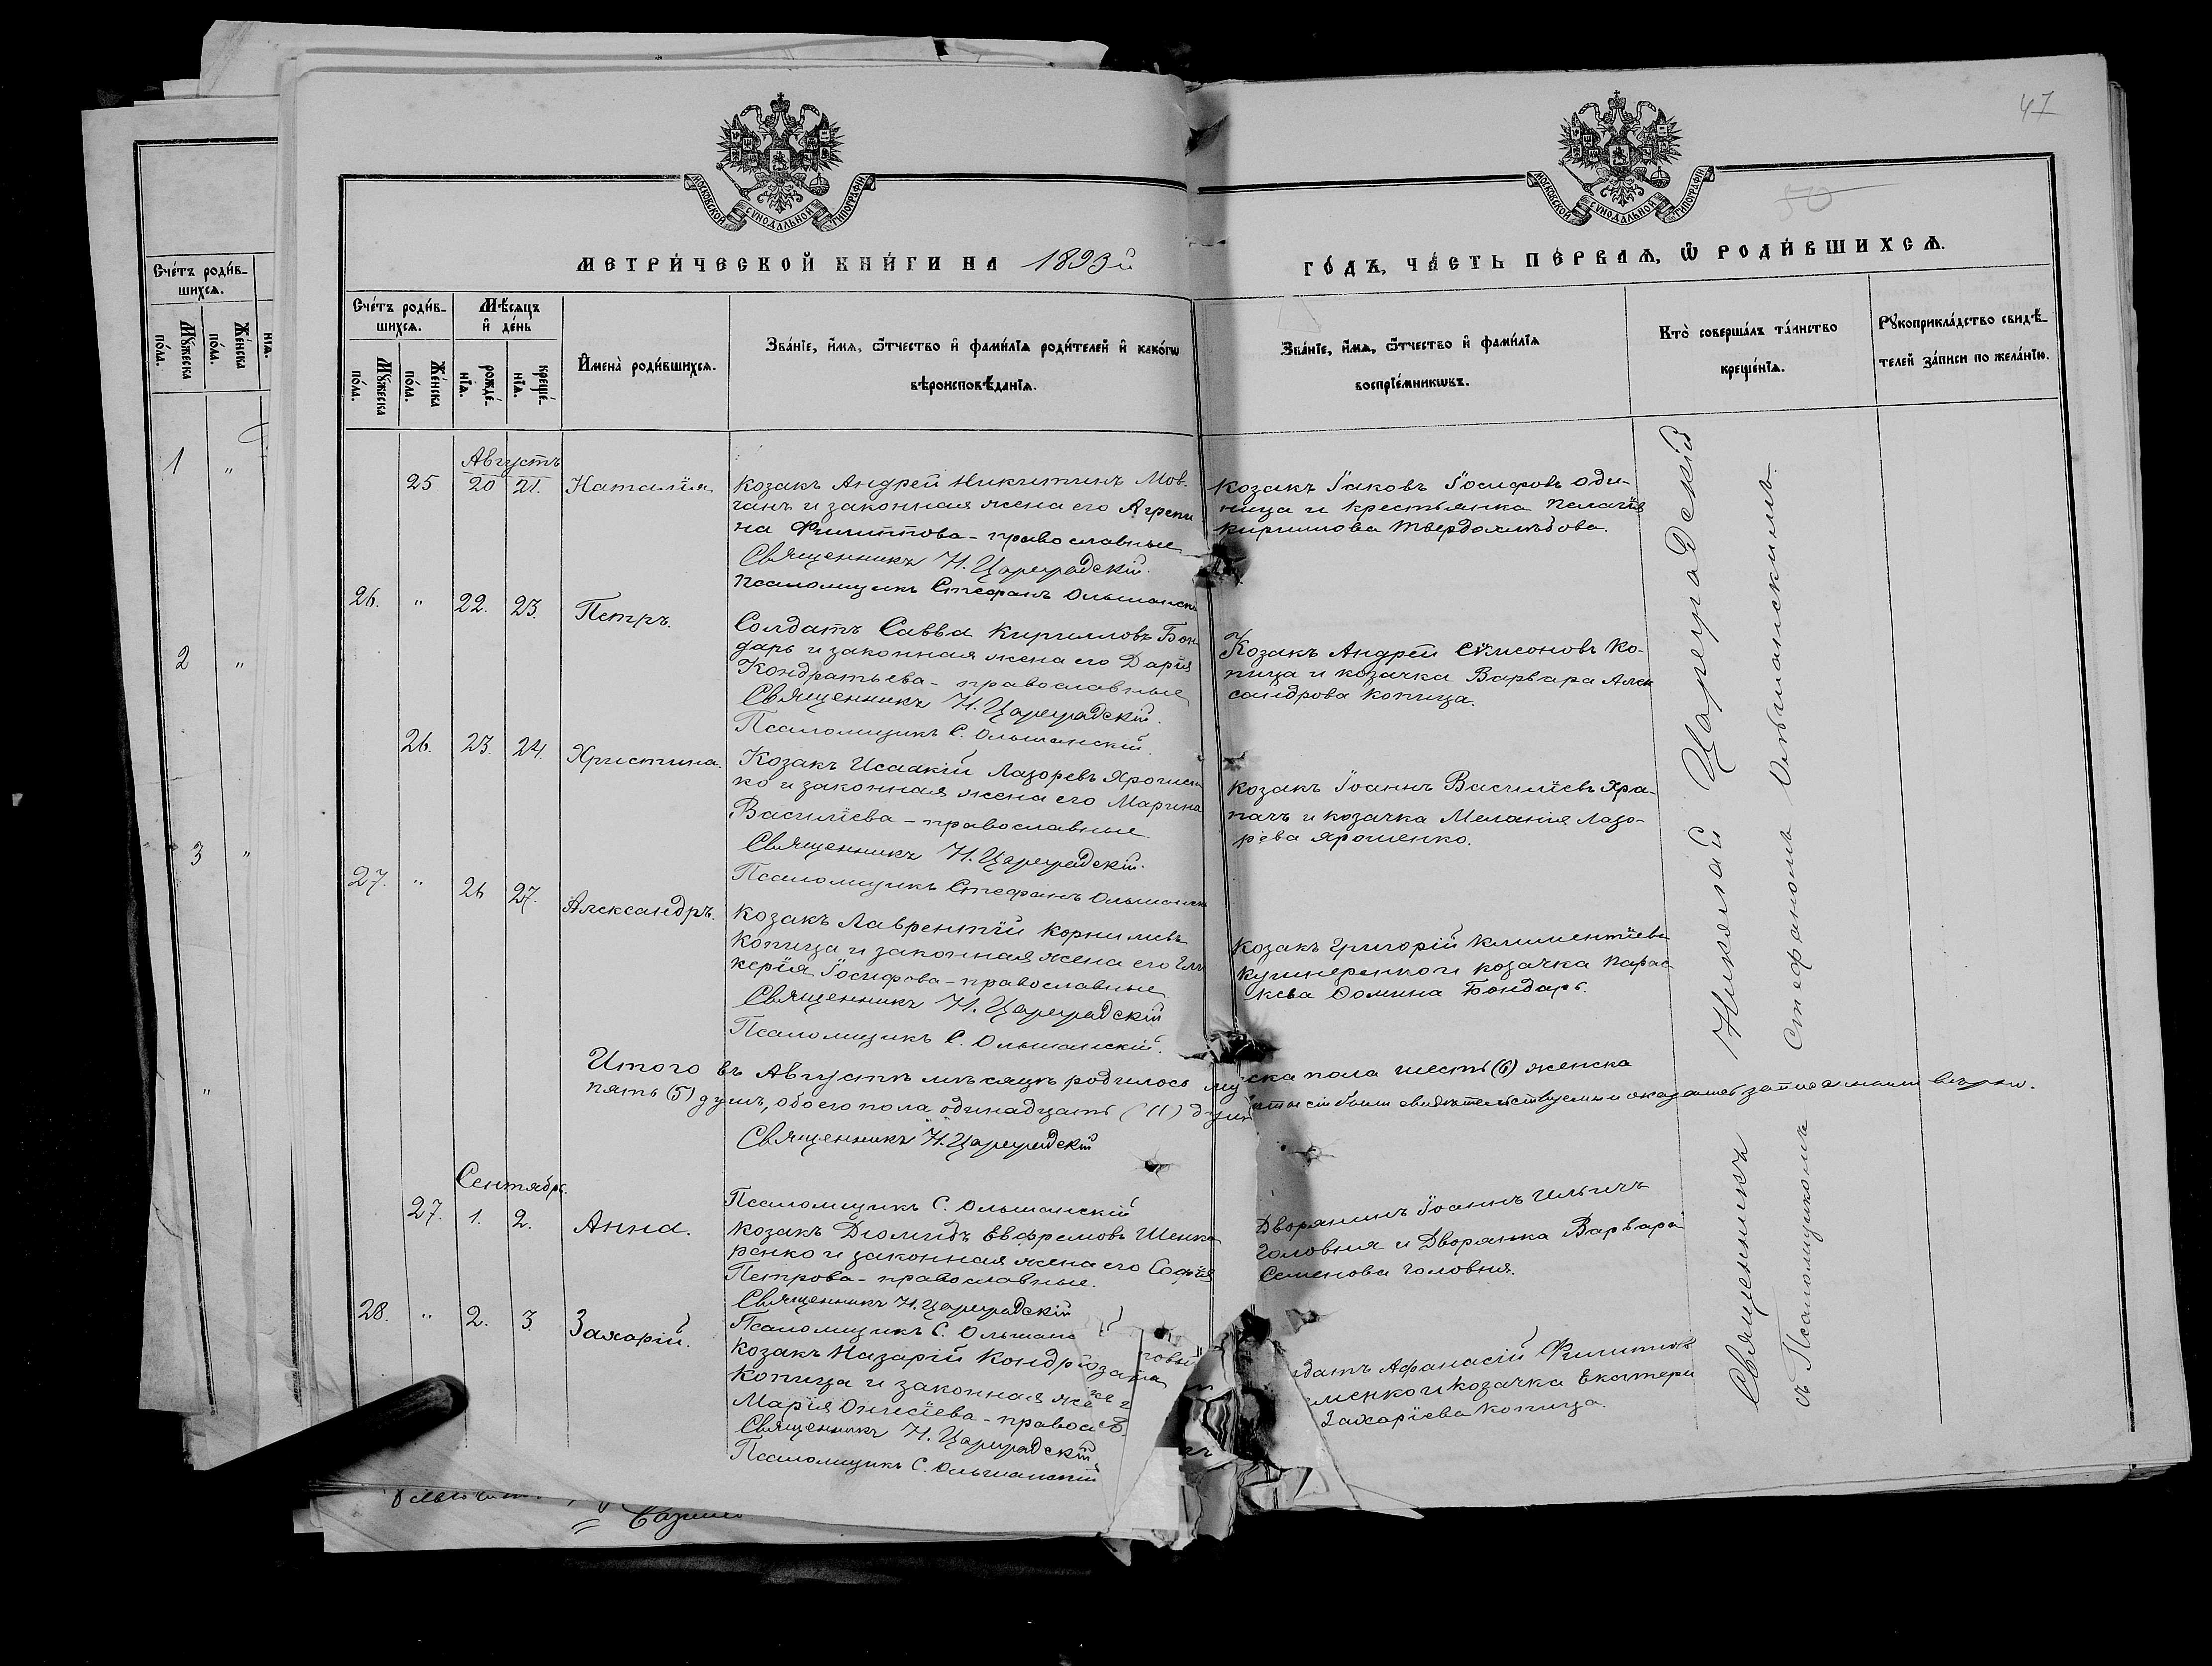 47
50
МОСКОВСКОЙ СѴНОДАЛЬНОЙ ТИПОГРАФІИ
МОСКОВСКОЙ СѴНОДАЛЬНОЙ ТИПОГРАФІИ
МЕТРИ́ЧЕСКОЙ КНИ́ГИ НА 1893й
ГО́ДЪ, ЧА́СТЬ ПЕ́РВАѦ, Ѿ РОДИ́ВШИХСѦ.
Сче́тъ роди́в-
шихсѧ.
Мꙋ́жеска
по́ла.
Же́нска
по́ла.
нїѧ.
1 "
2 "
3 "
"
Сче́тъ роди́в-
шихсѧ.
Мꙋ́жеска
по́ла.
Же́нска
по́ла.
Мѣ́сѧцъ
и҆ де́нь
рожде́-
нїѧ.
креще́-
нїѧ.
И҆мена̀ роди́вшихсѧ.
Зва́нїе, и҆́мѧ, ѻ҆́тчество и҆ фами́лїѧ роди́телей и҆ како́гѡ
вѣроисповѣ́данїѧ.
Зва́нїе, и҆́мѧ, ѻ҆́тчество и҆ фами́лїѧ
воспрїе́мникѡвъ.
Кто̀ соверша́лъ та́инство
креще́нїѧ.
Рꙋкоприкла́дство свидѣ́-
телей за́писи по жела́нїю.
Августъ
25. 20 21. Наталія
Козакъ Андрей Никитинъ Мов-
чанъ и законная жена его Агрепи
на Филиппова - православные
Священникъ Н. Цареградскій.
Псаломщикъ Стефанъ Ольшанскі
Козакъ Іаковъ Іосифовъ Оди-
ница и крестьянка Пелагія
Кириллова Твердохлѣбова.
26. " 22. 23. Петръ.
Солдатъ Савва Кирилловъ Бон
дарь и законная жена его Дарія
Кондратьева - православные
Священникъ Н. Цареградскій.
Псаломщикъ С. Ольшанскій.
Козакъ Андрей Сѵмеоновъ Ко-
пица и козачка Варвара Алек
сандрова Копица.
26. 23. 24. Христина.
Козакъ Исаакій Лазоревъ Ярошен
ко и законная жена его Марина
Василіева - православные
Священникъ Н. Цареградскій.
Псаломщикъ Стефанъ Ольшанск
Козакъ Іоаннъ Василіевъ Хра-
пачъ и козачка Меланія Лазо-
рева Ярошенко.
27. " 26 27. Александръ.
Козакъ Лаврентій Корнилевъ
Копица и законная жена его Гли
керія Іосифова - православные
Священникъ Н. Цареградскій
Псаломщикъ С. Ольшанскій.
Козакъ Григорій Климентіевъ
Кушнеренко и козачка Парас
кева Ѳомина Бондарь.
Итого въ Августѣ мѣсяцѣ родилось му ска пола шесть (6) женска
пять (5) душъ, обоего пола одинадцать (11) душ
сіи были свидѣтельствуемы и оказались записаными вѣрно.
Священникъ Н. Цареградскій
Псаломщикъ С. Ольшанскій
Сентябрь.
27. 1. 2. Анна.
Козакъ Діомидъ Евфремовъ Шенка
ренко и законная жена его Софія
Петрова - православные.
Священникъ Н. Цареградскій
Псаломщикъ С. Ольшанс
Дворянинъ Іоаннъ Ильичъ
Головня и Дворянка Варвара
Семенова Головня.
28. " 2. 3. Захарій.
Козакъ Назарій Кондр
Копица и законная же
Марія Онисіева - правос
Священникъ Н. Цареградскій
Псаломщикъ С. Ольшанскій
датъ Афанасій Филиппов
менко и козачка Екатери
Захаріева Копица.
Священникъ Николай Цареградскій
съ Псаломщикомъ Стефаномъ Ольшанскимъ.